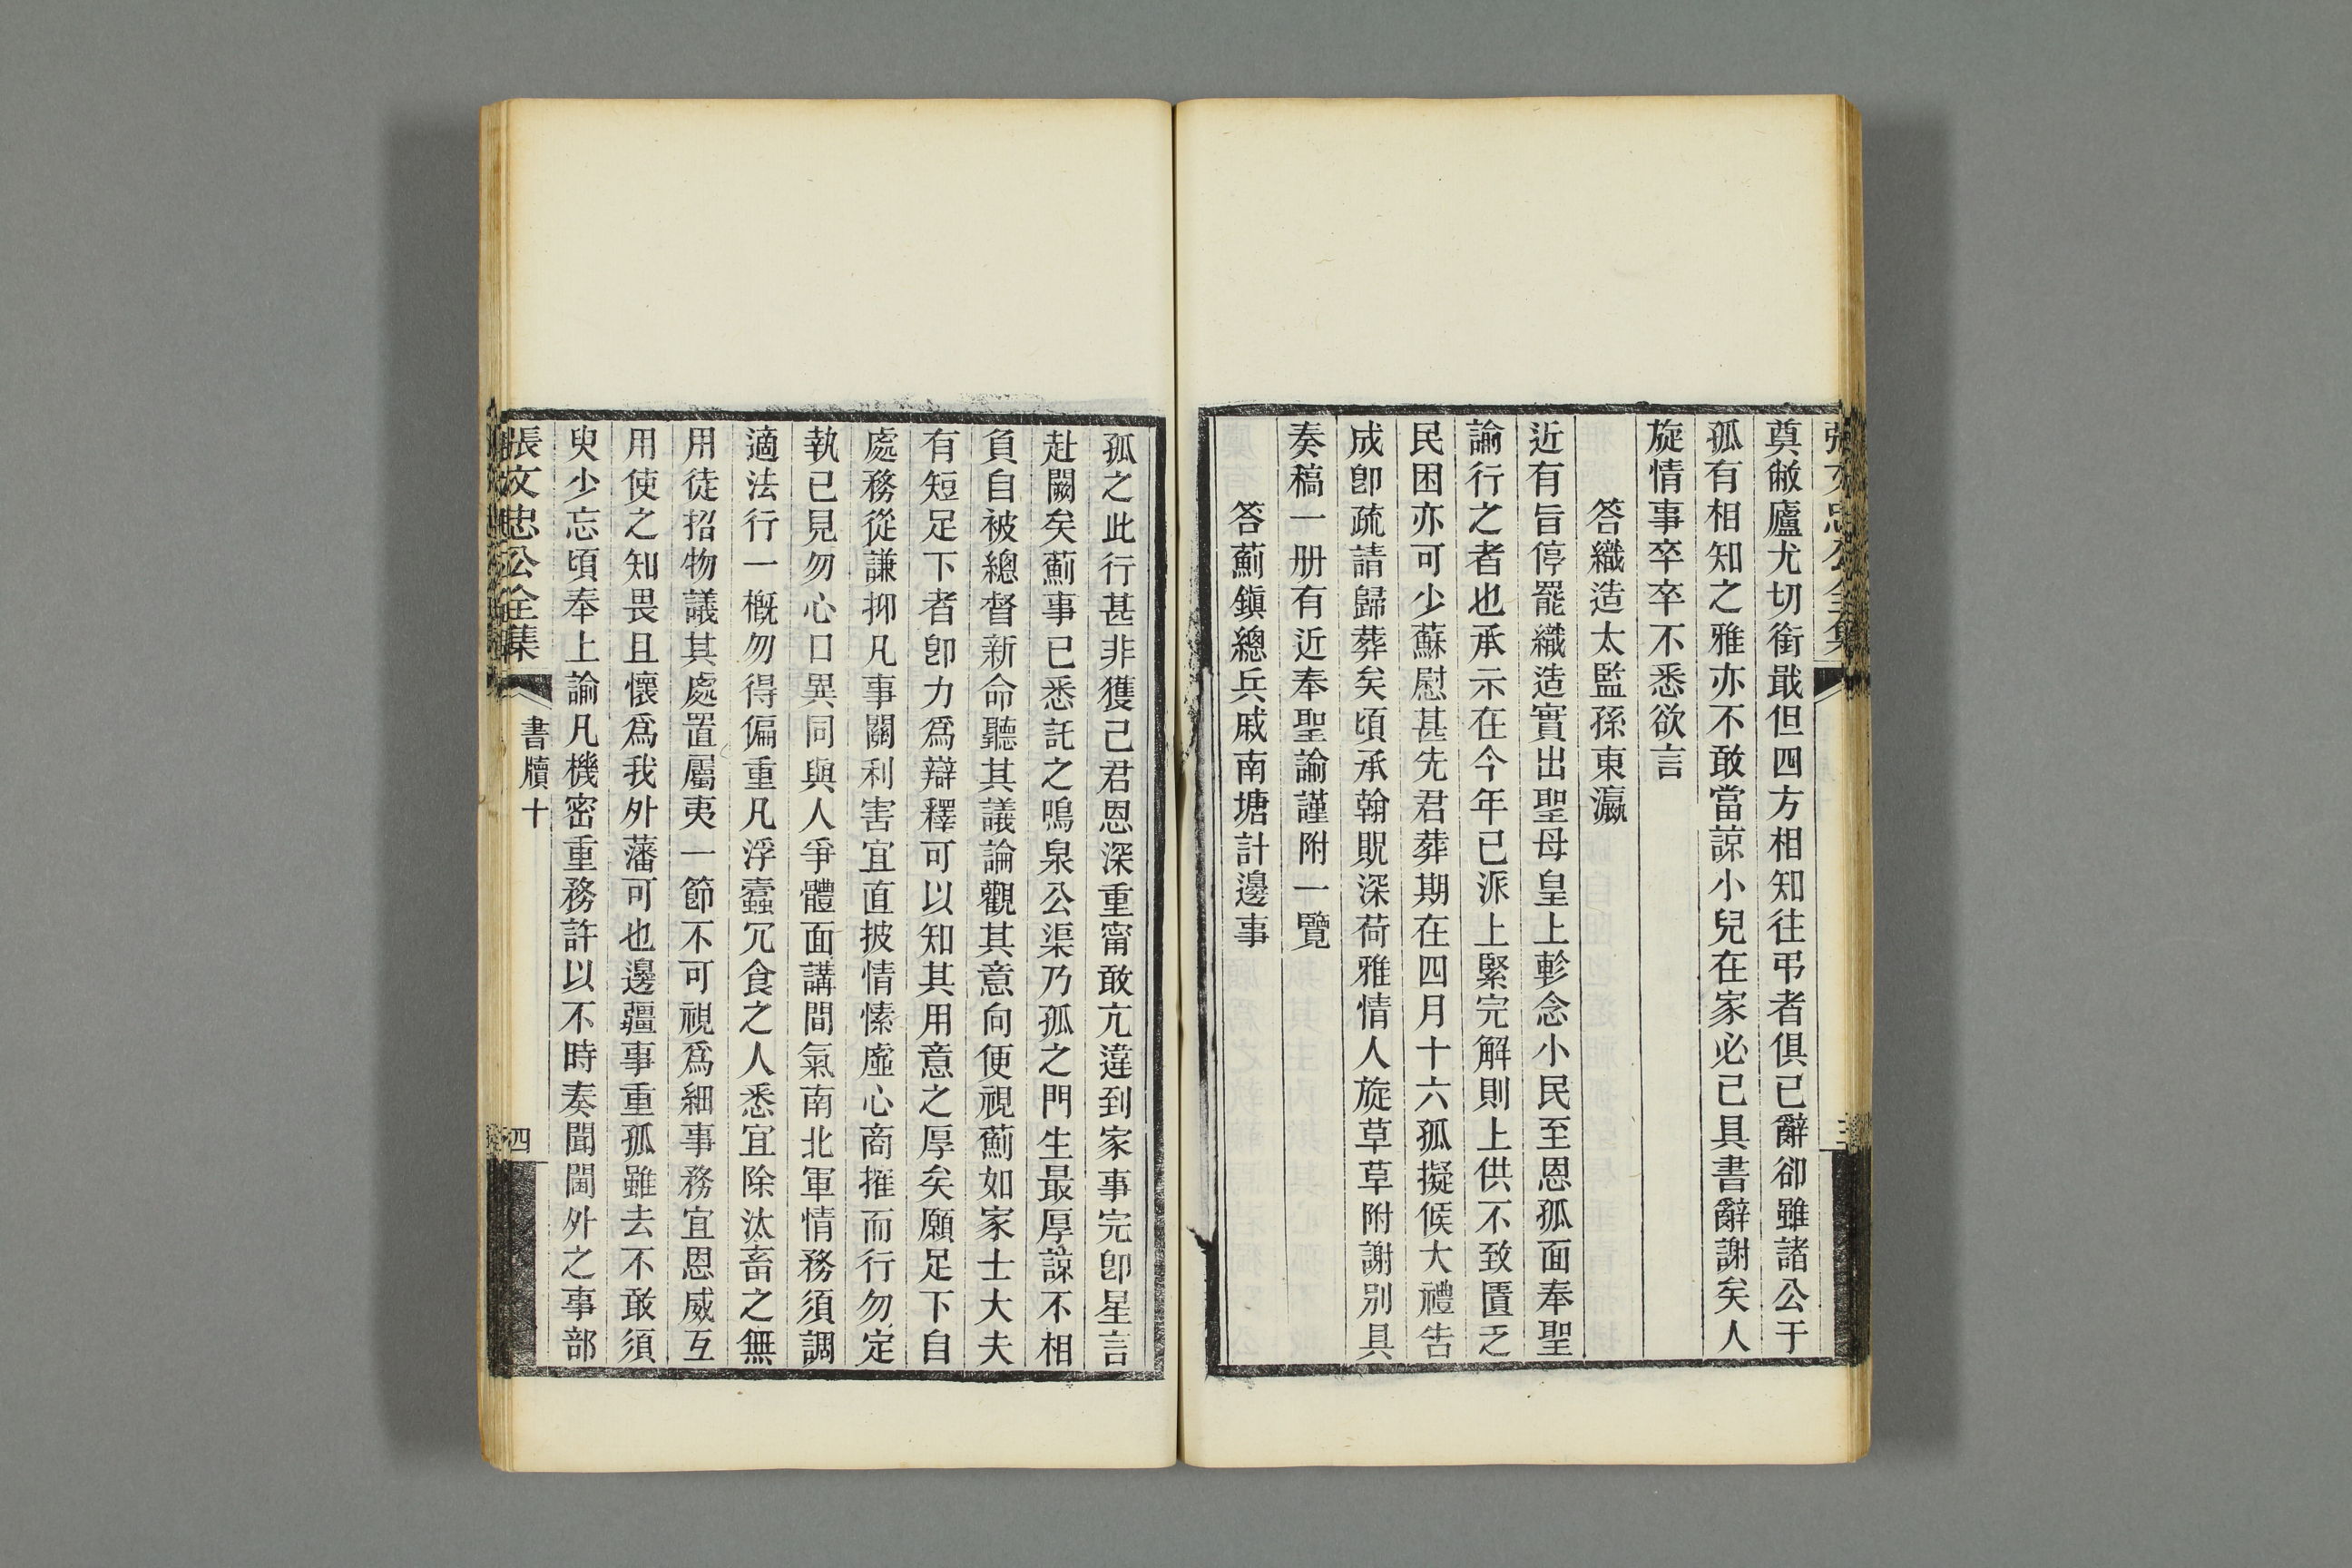 張文忠公全集
奠敝廬尤切銜戢但四方相知往弔者俱已辭卻雖諸公于
孤有相知之雅亦不敢當諒小兒在家必已具書辭謝矣人
旋情事卒卒不悉欲言
答織造太監孫東瀛
近有旨停罷織造實出聖母皇上軫念小民至恩孤面奉聖
諭行之者也承示在今年已派上緊完解則上供不致匱乏
民困亦可少蘇慰甚先君葬期在四月十六孤擬候大禮告
成卽疏請歸葬矣頃承翰貺深荷雅情人旋草草附謝別具
奏稿一册有近奉聖諭謹附一覽
答薊鎮總兵戚南塘計邊事
孤之此行甚非獲己君恩深重甯敢亢違到家事完卽星言
赴闕矣薊事已悉託之鳴泉公渠乃孤之門生最厚諒不相
負自被總督新命聽其議論觀其意向便視薊如家士大夫
有短足下者卽力爲辯釋可以知其用意之厚矣願足下自
處務從謙抑凡事關利害宜直披情愫虛心商搉而行勿定
執已見勿心口異同與人爭體面講間氣南北軍情務須調
適法行一槪勿得偏重凡浮蠹冗食之人悉宜除汰畜之無
用徒招物議其處置屬夷一節不可視爲細事務宜恩威互
用使之知畏且懷爲我外藩可也邊疆事重孤雖去不敢須
臾少忘頃奉上諭凡機密重務許以不時奏聞閫外之事部
張文忠公全集
書牘十
四